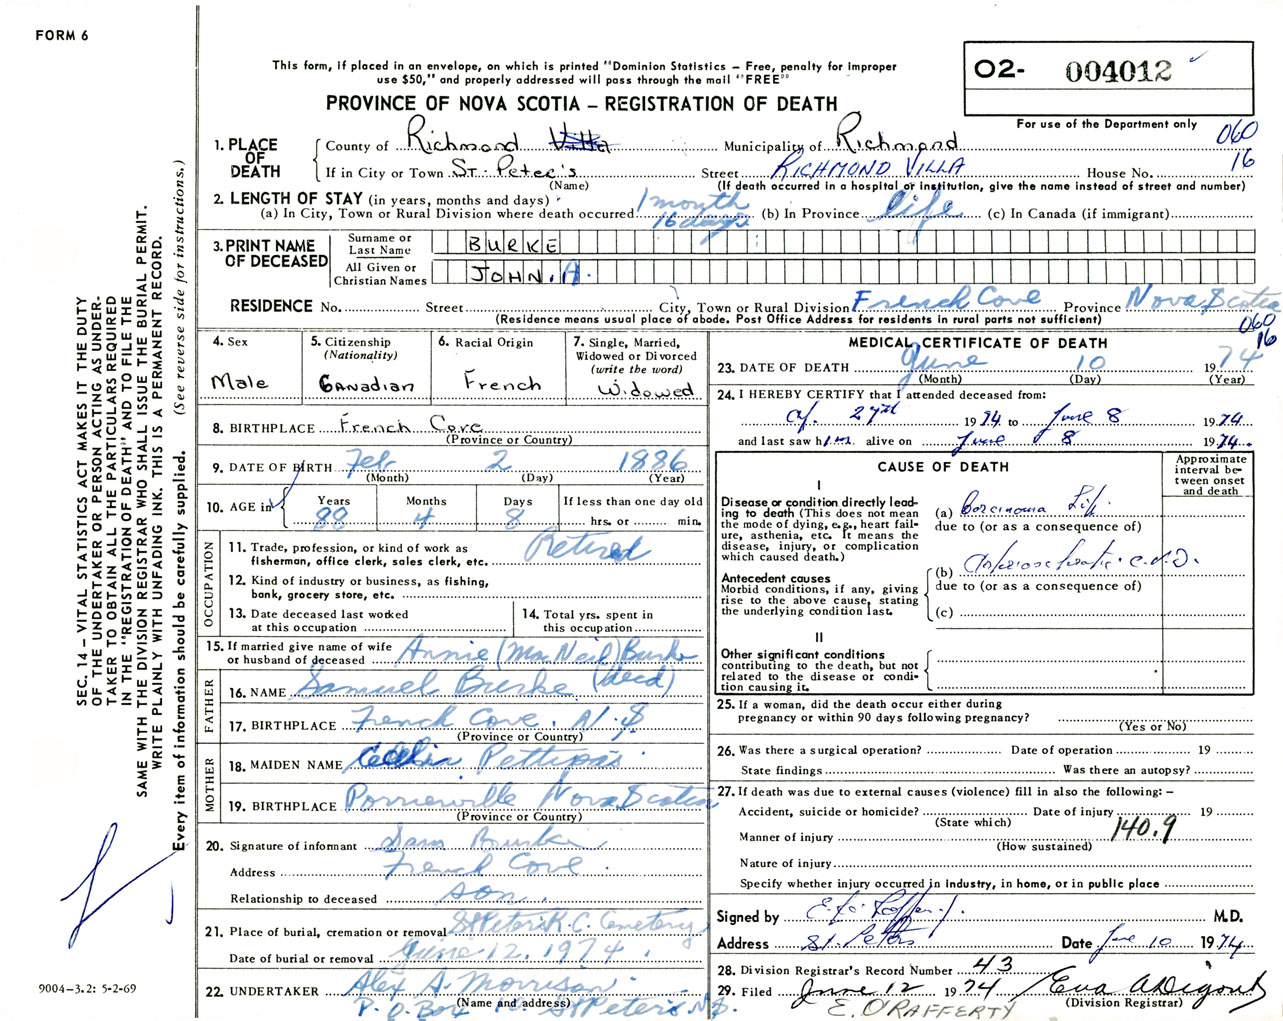 FORM 6
This form, if placed in an envelope, on which is printed "Dominion Statistics – Free, penalty for improper
use $50," and properly addressed will pass through the mail "FREE"
PROVINCE OF NOVA SCOTIA – REGISTRATION OF DEATH
O2- 004012
For use of the Department only
060
16
1. PLACE OF DEATH
County of Richmond Villa Municipality of Richmond
If in City or Town St. Peter's Street RICHMOND VILLA House No.
(Name) (If death occurred in a hospital or institution, give the name instead of street and number)
2. LENGTH OF STAY (in years, months and days)
(a) In City, Town or Rural Division where death occurred 1 month 16 days (b) In Province life (c) In Canada (if immigrant)
3. PRINT NAME OF DECEASED
Surname or Last Name BURKE
All Given or Christian Names JOHN. A.
RESIDENCE No. Street City, Town or Rural Division French Cove Province Nova Scotia
(Residence means usual place of abode. Post Office Address for residents in rural parts not sufficient)
060
16
4. Sex Male
5. Citizenship (Nationality) Canadian
6. Racial Origin French
7. Single, Married, Widowed or Divorced (write the word) Widowed
8. BIRTHPLACE French Cove
(Province or Country)
9. DATE OF BIRTH Feb 2 1886
(Month) (Day) (Year)
10. AGE in Years 88 Months 4 Days 8 If less than one day old hrs. or min.
OCCUPATION
11. Trade, profession, or kind of work as fisherman, office clerk, sales clerk, etc. Retired
12. Kind of industry or business, as fishing, bank, grocery store, etc.
13. Date deceased last worked at this occupation
14. Total yrs. spent in this occupation
15. If married give name of wife or husband of deceased Annie (Mac Neil) Burke (decd)
FATHER
16. NAME Samuel Burke
17. BIRTHPLACE French Cove. N.S.
(Province or Country)
MOTHER
18. MAIDEN NAME Pettipas
19. BIRTHPLACE Nova Scotia
(Province or Country)
20. Signature of informant Sam Burke
Address French Cove
Relationship to deceased son
21. Place of burial, cremation or removal St Peter's R.C. Cemetery
Date of burial or removal June 12, 1974
22. UNDERTAKER Alex A. Morrison
(Name and address)
P.O. Box St Peter's N.S.
MEDICAL CERTIFICATE OF DEATH
23. DATE OF DEATH June 10 1974
(Month) (Day) (Year)
24. I HEREBY CERTIFY that I attended deceased from:
27th 1974 to June 8 1974
and last saw him alive on June 8 1974.
CAUSE OF DEATH
Approximate interval between onset and death
I
Disease or condition directly leading to death (This does not mean the mode of dying, e.g., heart failure, asthenia, etc. It means the disease, injury, or complication which caused death.)
(a) Carcinoma Lip
due to (or as a consequence of)
Antecedent causes
Morbid conditions, if any, giving rise to the above cause, stating the underlying condition last.
(b) Arteriosclerotic C.V.D.
due to (or as a consequence of)
(c)
II
Other significant conditions
contributing to the death, but not related to the disease or condition causing it.
25. If a woman, did the death occur either during pregnancy or within 90 days following pregnancy?
(Yes or No)
26. Was there a surgical operation? Date of operation 19
State findings Was there an autopsy?
27. If death was due to external causes (violence) fill in also the following: –
Accident, suicide or homicide? Date of injury 19
(State which)
140.9
Manner of injury
(How sustained)
Nature of injury
Specify whether injury occurred in industry, in home, or in public place
Signed by M.D.
Address St. Peters Date June 10 1974
28. Division Registrar's Record Number 43
29. Filed June 12 1974 Eva A Digout
(Division Registrar)
E. O'RAFFERTY
SEC. 14 – VITAL STATISTICS ACT MAKES IT THE DUTY
OF THE UNDERTAKER OR PERSON ACTING AS UNDER-
TAKER TO OBTAIN ALL THE PARTICULARS REQUIRED
IN THE "REGISTRATION OF DEATH" AND TO FILE THE
SAME WITH THE DIVISION REGISTRAR WHO SHALL ISSUE THE BURIAL PERMIT.
WRITE PLAINLY WITH UNFADING INK. THIS IS A PERMANENT RECORD.
Every item of information should be carefully supplied. (See reverse side for instructions.)
9004–3.2: 5-2-69